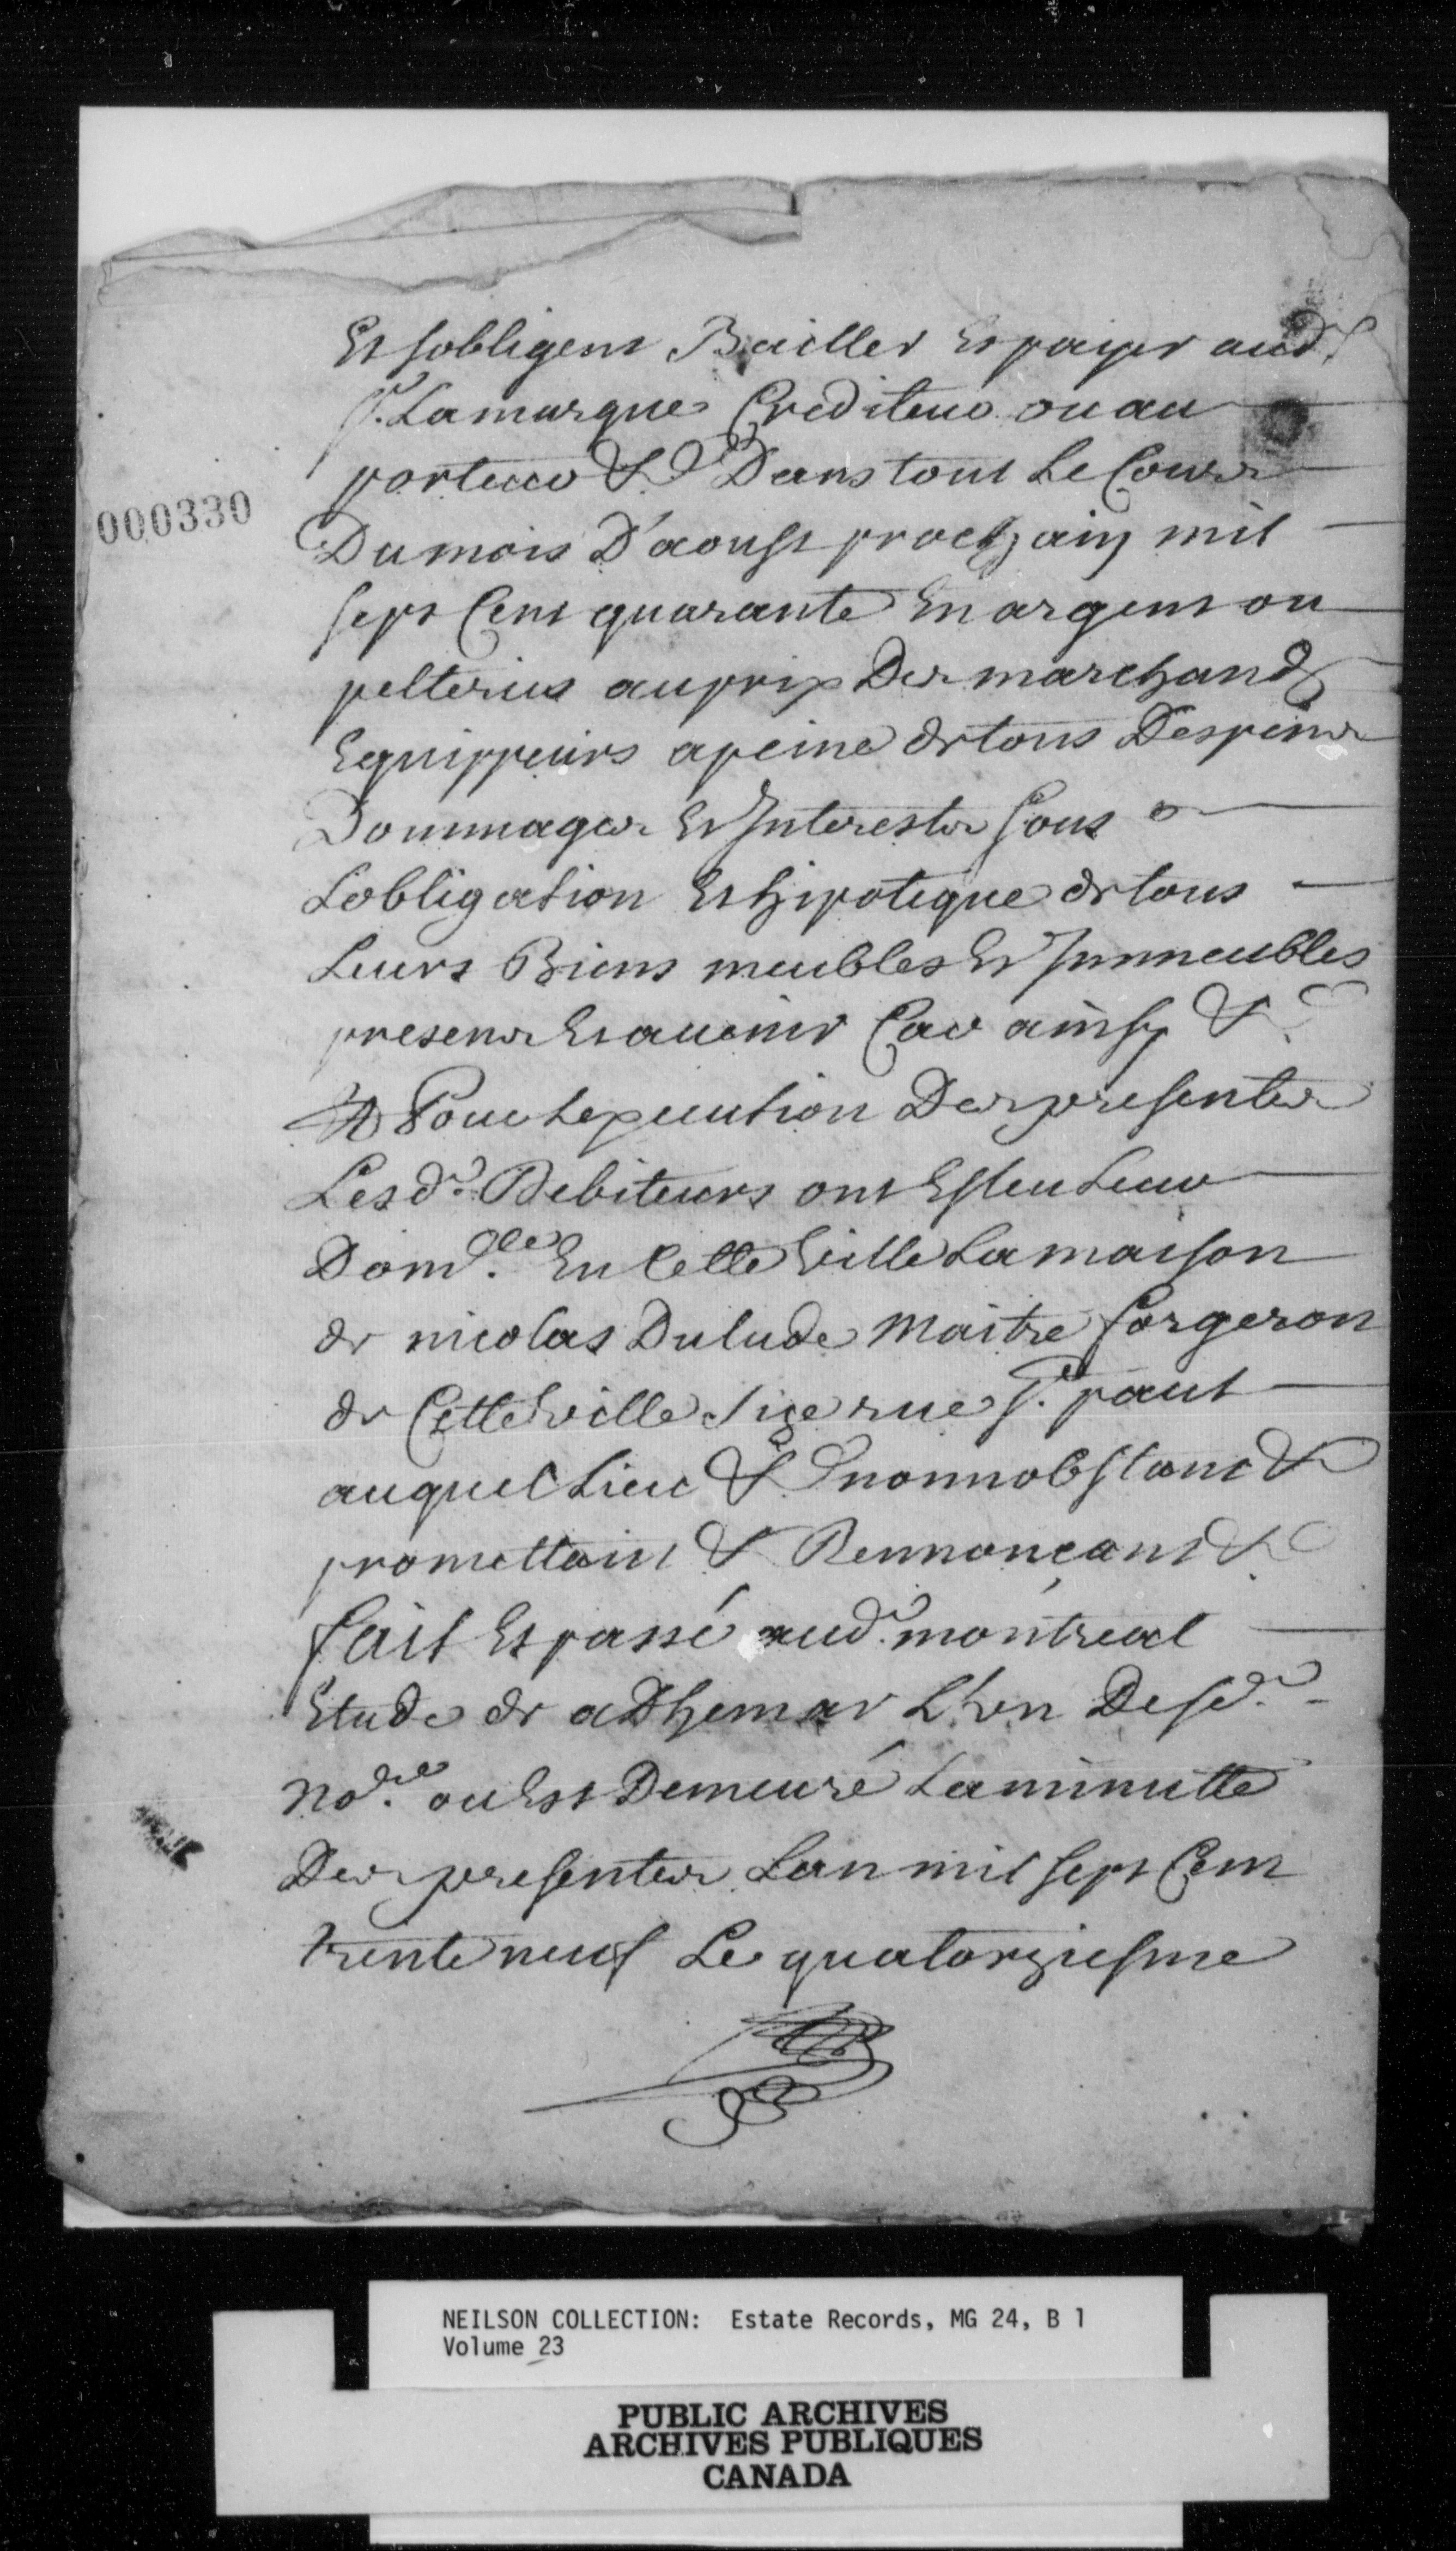 Et sobligent Bailler Et paiyer aud.
Sr. Lamarque Crediteur ou au
porteur &c Dans tout Le Cours
Du mois D'aoust prochain mil
sept Cent quarante En argent ou
pelteries au prix Des marchands
Equippeurs a peine de tous Despens
Dommages Et Interests sous
Lobligation Et hipoteque de tous
Leurs Biens meubles Et Immeubles
presens Et avenir Car ainsy &c
Et Pour Lexecution Des presentes
Lesd. Debiteurs ont Esleu Leur
Domlle. En Cette Ville La maison
de nicolas Dulude Maitre forgeron
de Cette ville sise rue St. paul
auquel Lieu &c nonnobstant &c
promettant & Rennonçant &c
fait Et passé aud. montreal
Etude de aDhemar L'un Desd.
Nore. ou Est Demeuré La minutte
Des presentes Lan mil sept Cent
trente neuf Le quatorziesme
000330
NEILSON COLLECTION: Estate Records, MG 24, B 1
Volume 23
PUBLIC ARCHIVES
ARCHIVES PUBLIQUES
CANADA